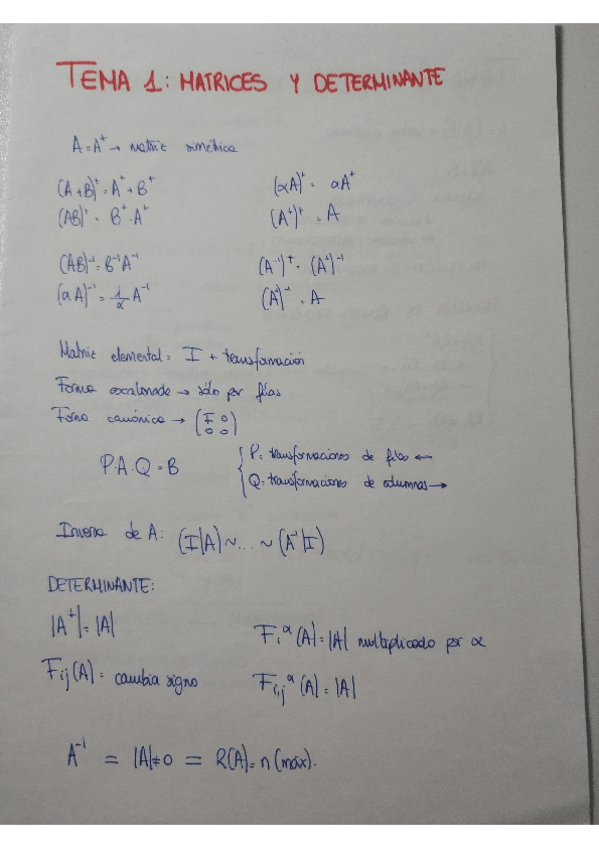 TEMA 1: MATRICES Y DETERMINANTE
A = A^t → matriz simétrica
(A+B)^t = A^t + B^t    (αA)^t = αA^t
(AB)^t = B^t · A^t    (A^t)^t = A
(AB)^-1 = B^-1 A^-1    (A^-1)^t = (A^t)^-1
(αA)^-1 = 1/α A^-1    (A^-1)^-1 = A
Matriz elemental = I + transformación
Forma escalonada → sólo por filas
Forma canónica → (I 0
0 0)
P·A·Q = B    { P = transformaciones de filas ←
Q = transformaciones de columnas →
Inversa de A: (I|A) ~ ... ~ (A^-1|I)
DETERMINANTE:
|A^t| = |A|    F_i^α (A) = |A| multiplicado por α
F_ij (A) = cambia signo    F_i,j^α (A) = |A|
A^-1 = |A| ≠ 0 = R(A) = n (máx).